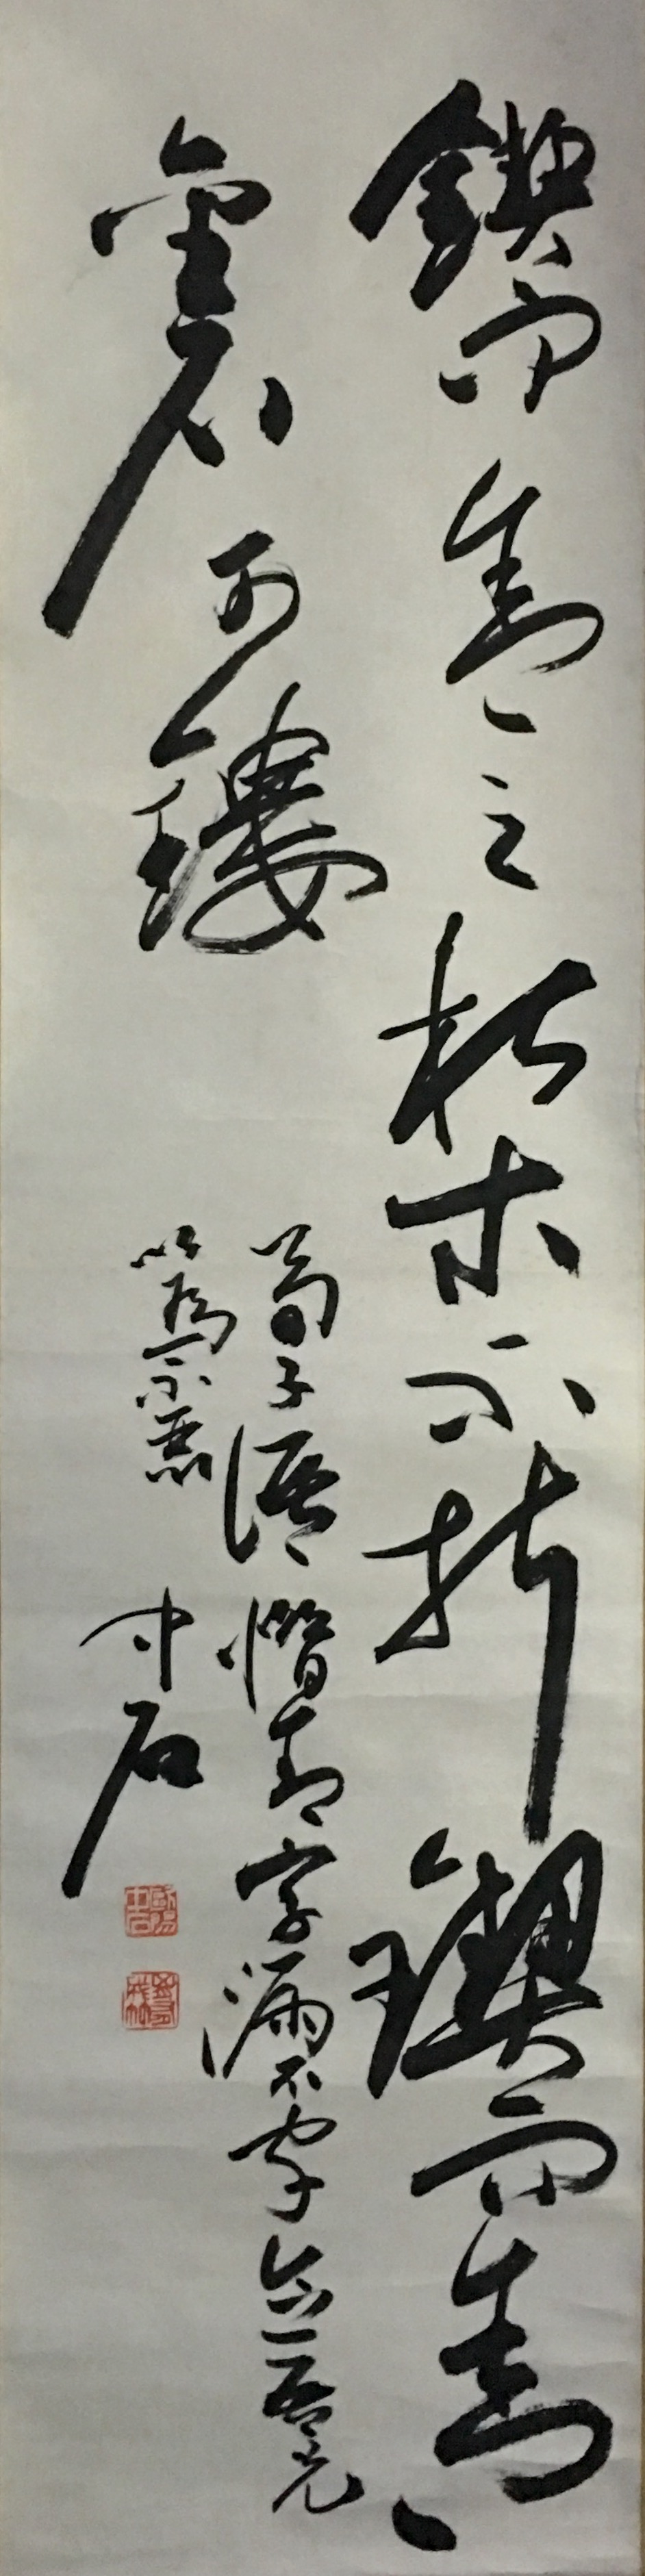 鍥而舍之朽木不折鍥而舍
金石可鏤
荀子語惜字漏不字
以為不惡
中石
歐陽中石